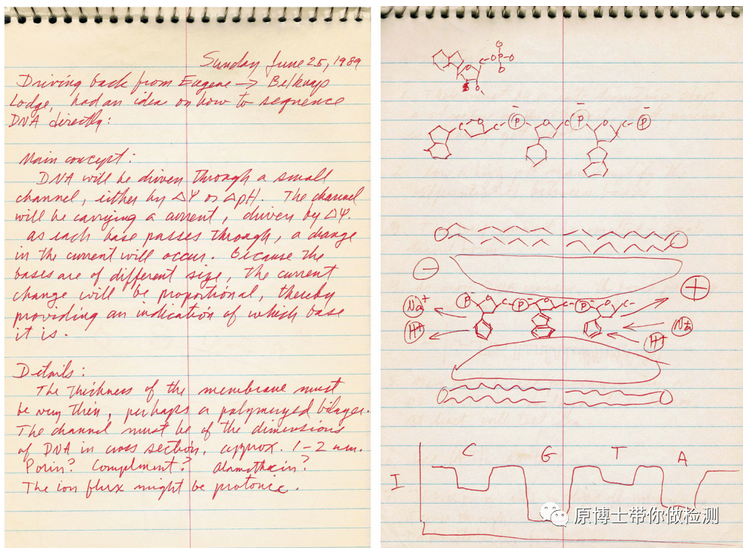 Sunday June 25, 1989
Driving back from Eugene → Belknap
Lodge, had an idea on how to sequence
DNA directly:
Main concept:
DNA will be driven through a small
channel, either by ΔΨ or ΔpH. The channel
will be carrying a current, driven by ΔΨ.
as each base passes through, a change
in the current will occur. Because the
bases are of different size, the current
change will be proportional, thereby
providing an indication of which base
it is.
Details:
The thickness of the membrane must
be very thin, perhaps a polymerized bilayer.
The channel must be of the dimensions
of DNA in cross section, approx. 1-2 nm.
Porin? Complement? Alamethicin?
The ion flux might be protonic.
C-O-P-O
C C-P C-P C-P
-
+
Na+ P C-P C-P C-
H+ Na+
H+
C G T A
I
原博士带你做检测